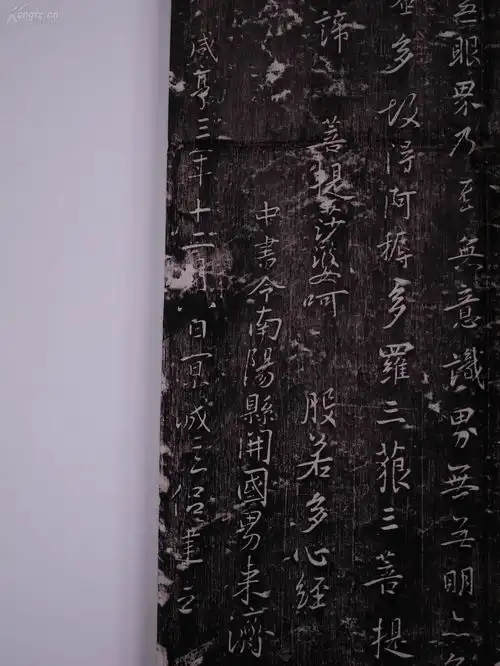 眼界乃至無意識界無无明亦
多故得阿耨多羅三藐三菩提
諦 菩提莎婆呵 般若多心經
中書令南陽縣開國男來濟
咸亨三年十二月八日京城法侶建立
Kongfz.cn